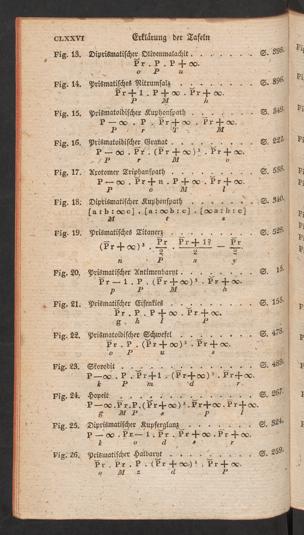 CLXXVI Erklärung der Tafeln
Fig. 13. Diprismatischer Olivenmalachit . . . . . . S. 398.
P̆r . P . P + ∞.
o P u
Fig. 14. Prismatisches Nitrumsalz . . . . . . . . S. 896.
P̆r + 1 . P + ∞ . P̆r + ∞.
P M h
Fig. 15. Prismatoidischer Kuphonspath . . . . . . S. 349.
P — ∞ . P . P̆r + ∞ . P̄r + ∞.
P r T M
Fig. 16. Prismatoidischer Granat . . . . . . . . S. 222.
P — ∞ . P̄r . (P̆r + ∞)³ . P̆r + ∞.
P r M o
Fig. 17. Axotomer Triphanspath . . . . . . . . S. 538.
P — ∞ . P̆r + n . P + ∞ . P̄r + ∞.
P o M l
Fig. 18. Diprismatischer Kuphonspath . . . . . . S. 340.
[a : b : ∞c] . [a : ∞b : c] . [∞a : b : c]
M r s
Fig. 19. Prismatisches Titanerz
(P̆r + ∞)³ . P̄r/2 . P̄r + 1?/2 — P̄r/2
n P x y
Fig. 20. Prismatischer Antimonbaryt . . . . . . S. 15.
P̆r — 1 . P . (P̆r + ∞)³ . P̆r + ∞.
p P M h
Fig. 21. Prismatischer Eisenkies . . . . . . . . S. 155.
P̆r . P . P + ∞ . P̄r + ∞.
g h l P
Fig. 22. Prismatoidischer Schwefel . . . . . . . S. 478.
P̆r . P . (P̆r + ∞)³ . P̆r + ∞.
o P u s
Fig. 23. Skorodit
P — ∞ . P . P̆r + 1 . (P̆r + ∞)³ . P̆r + ∞.
k P m d r
Fig. 24. Hopeit . . . . . . . . . . . . S. 267.
P — ∞ . P̄r . P . (P̆r + ∞)³ . P̆r + ∞ . P̄r + ∞.
g M P s p
Fig. 25. Diprismatischer Kupferglanz . . . . . . S. 324.
P — ∞ . P̄r — 1 . P̆r . P̆r + ∞ . P̄r + ∞.
k o d s r
Fig. 26. Prismatischer Halbaryt . . . . . . . . S. 259.
P̆r . P̄r . P . (P̆r + ∞)³ . P̆r + ∞.
o M z d P